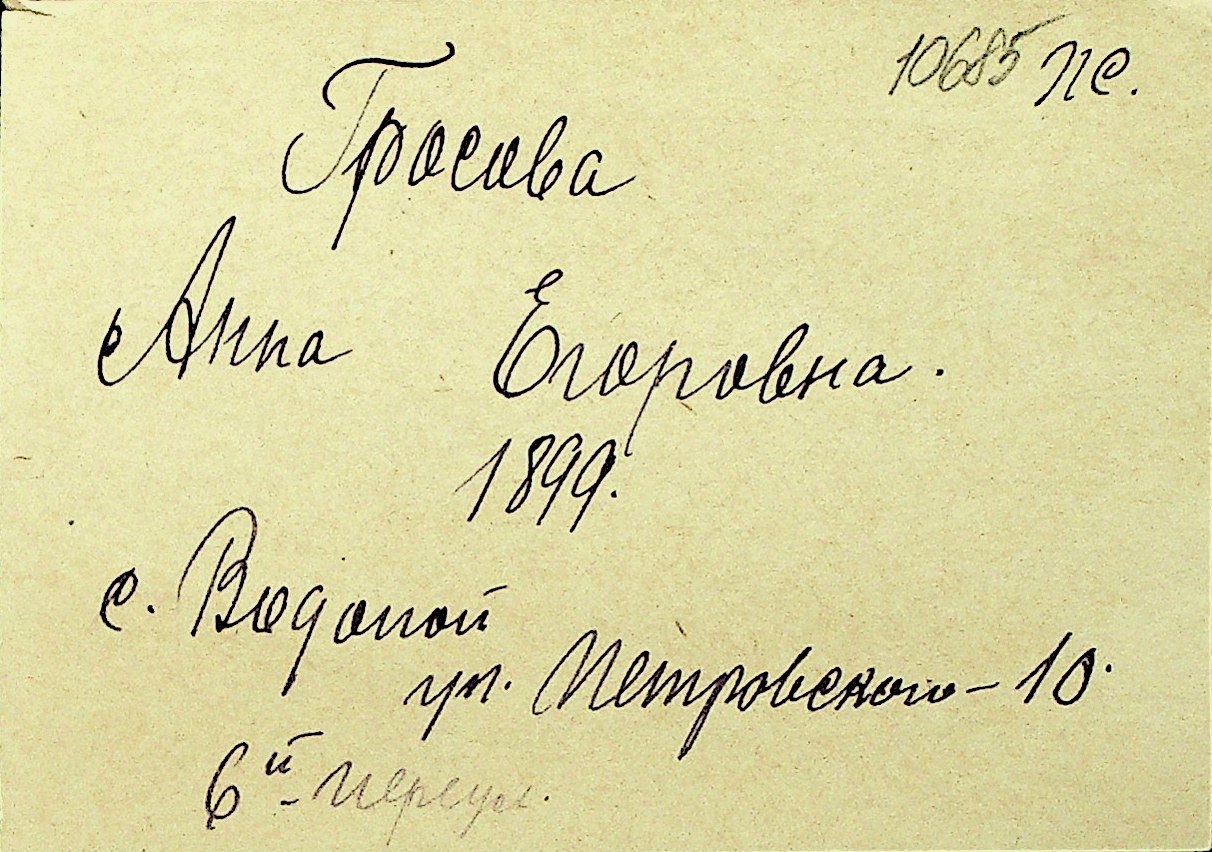 10685 пс.
Гросова
Анна Егоровна.
1899.
с. Водопой
ул. Петровского - 10.
6й переул.